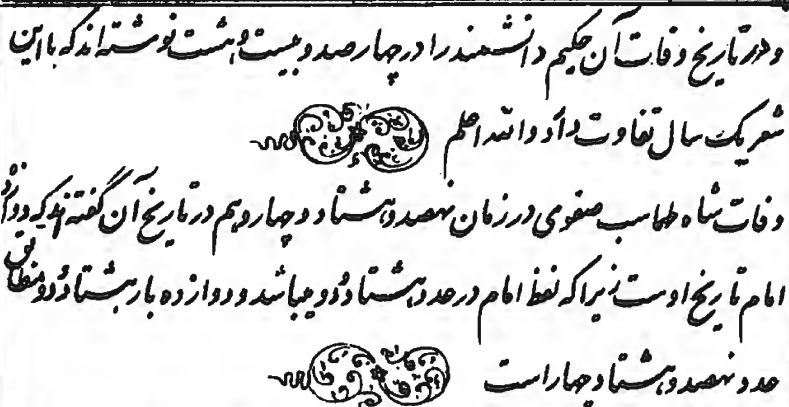 و در تاریخ وفات آن حکیم دانشمند را در چهارصد و بیست و هشت نوشته‌اند که با این
شعر یک سال تفاوت دارد والله اعلم
وفات شاه طهماسب صفوی در زمان نهصد و هشتاد و چهار و هم در تاریخ آن گفته‌اند که دوازده
امام تاریخ اوست زیرا که لفظ امام در عدد هشتاد و دو میباشد و دوازده بار هشتاد و دو مطابق
عدد نهصد و هشتاد و چهار است